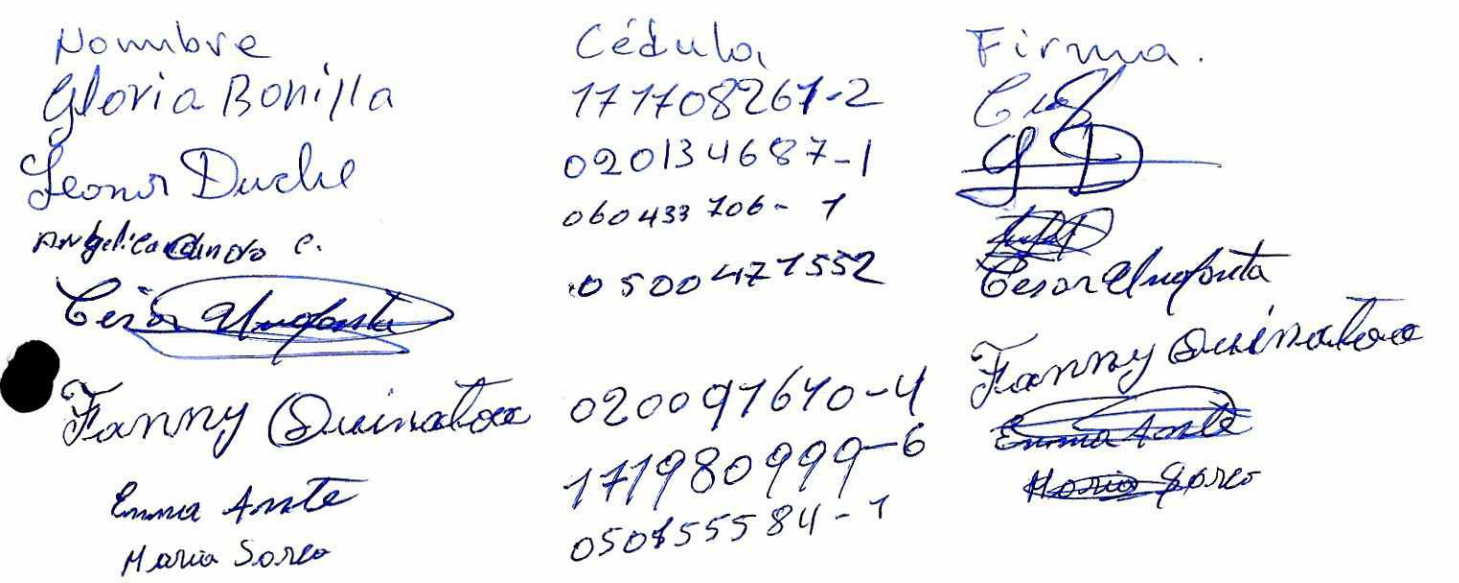 Nombre Cédula Firma.
Gloria Bonilla 171708261-2
Leonor Duche 020134687-1
Angelica C. 060433706-1
César 0500471552 Cesar
Fanny Quinatoa 020097610-4 Fanny Quinatoa
Emma Ante 171980999-6 Emma Ante
Maria Sorco 050155584-1 Maria Sorco